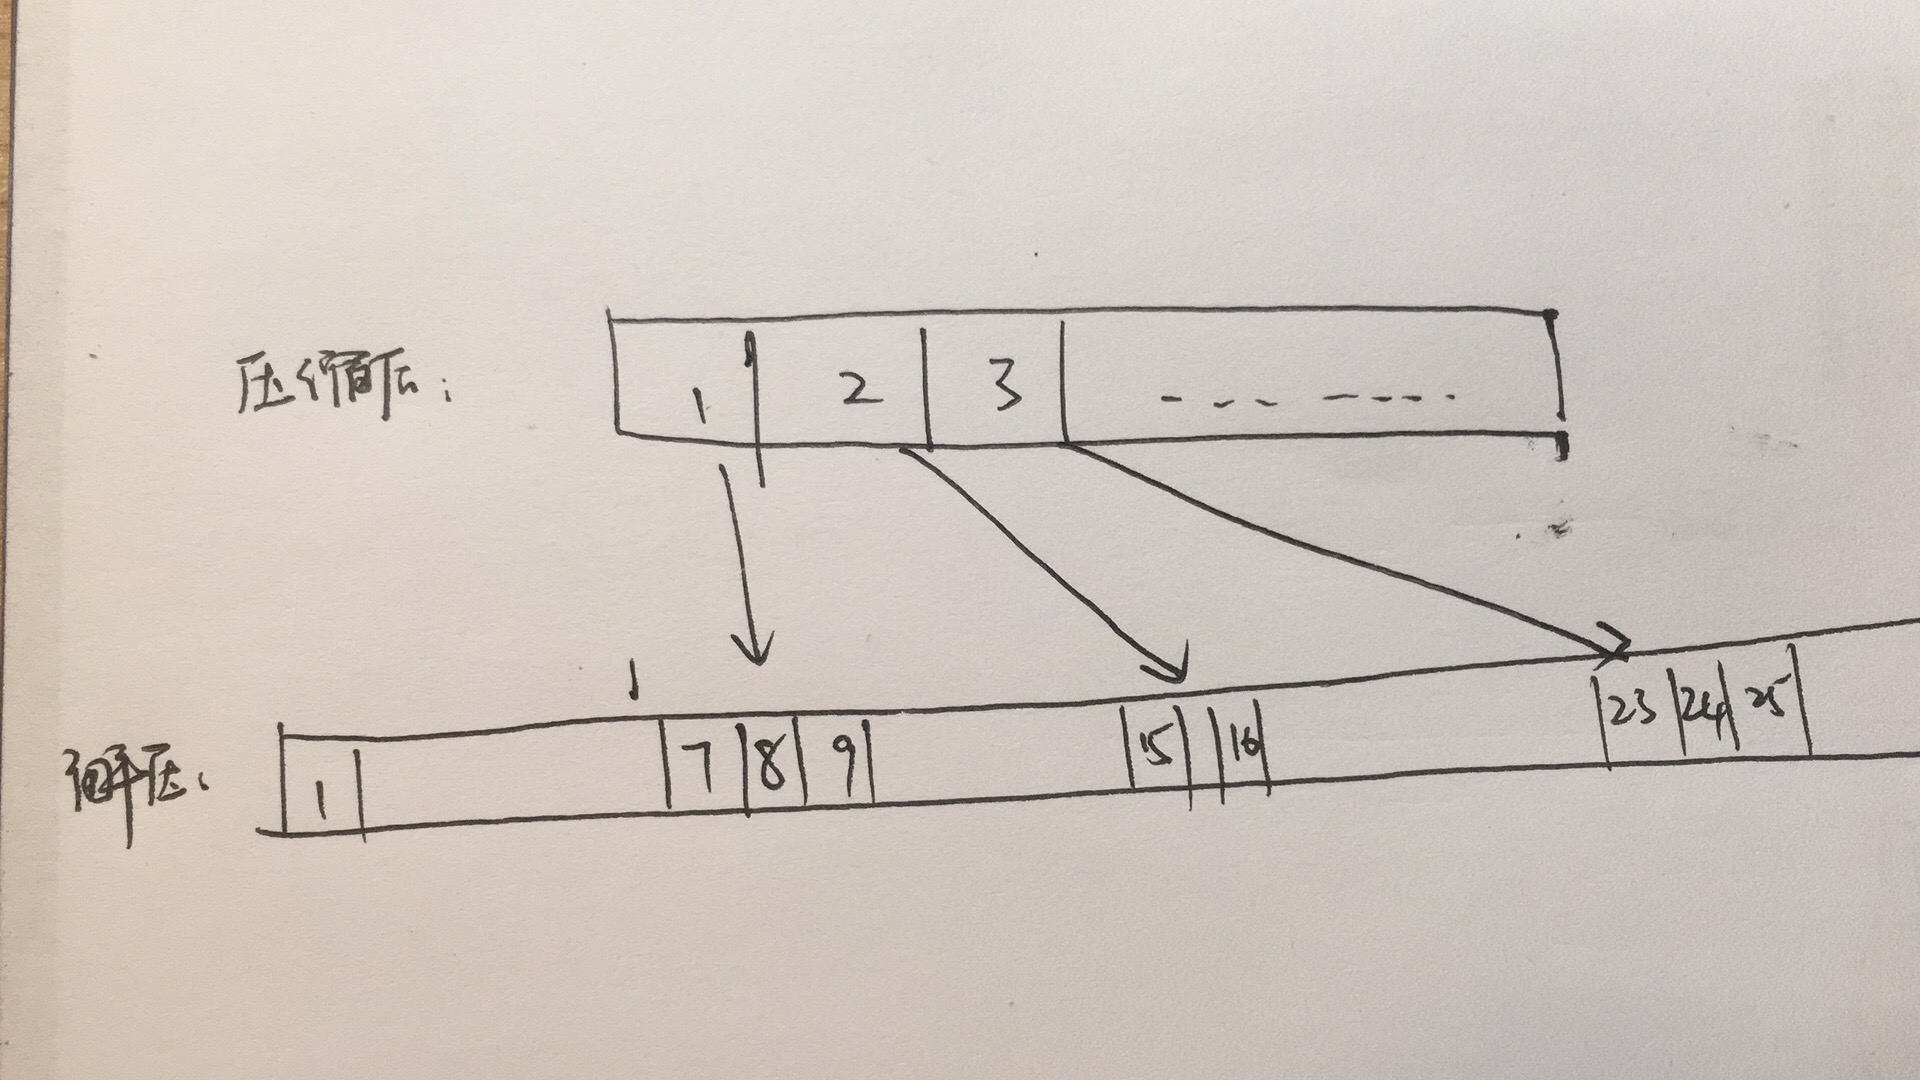 压缩后:
1 2 3 ---- ----.
解压:
1 7 8 9 15 16 23 24 25